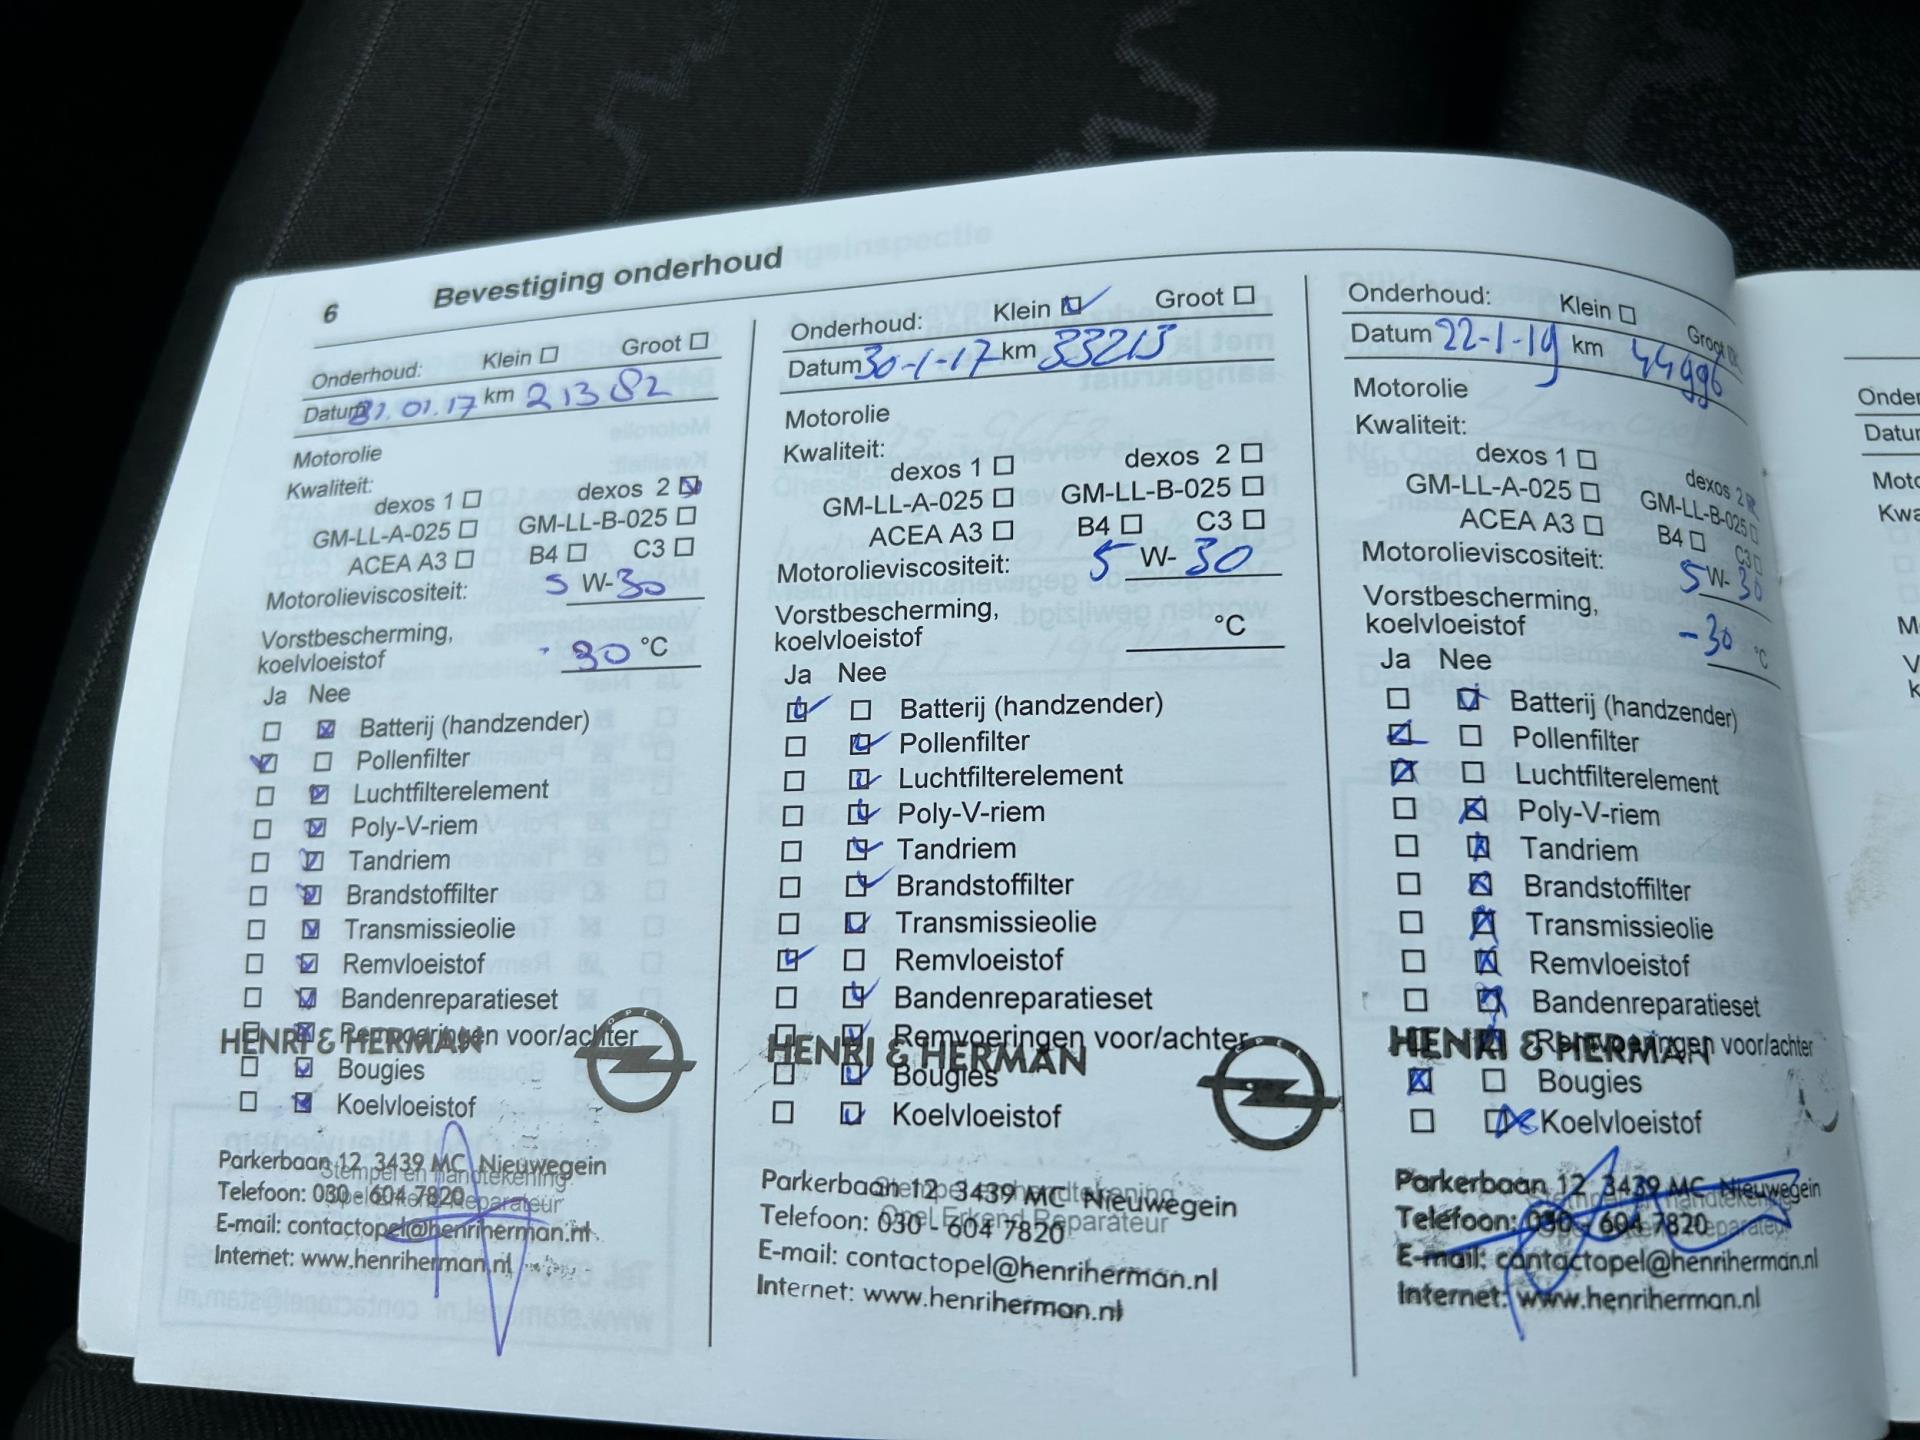 6 Bevestiging onderhoud
Onderhoud: Klein Groot
Datum 31.01.17 km 21382
Motorolie
Kwaliteit:
dexos 1 dexos 2
GM-LL-A-025 GM-LL-B-025
ACEA A3 B4 C3
Motorolieviscositeit: 5 W-30
Vorstbescherming,
koelvloeistof - 30 °C
Ja Nee
Batterij (handzender)
Pollenfilter
Luchtfilterelement
Poly-V-riem
Tandriem
Brandstoffilter
Transmissieolie
Remvloeistof
Bandenreparatieset
Remvoeringen voor/achter
HENRI & HERMAN
OPEL
Bougies
Koelvloeistof
Stempel en handtekening
Opel Erkend Reparateur
Parkerbaan 12 3439 MC Nieuwegein
Telefoon: 030 - 604 7820
E-mail: contactopel@henriherman.nl
Internet: www.henriherman.nl
Onderhoud: Klein Groot
Datum 30-1-17 km 33213
Motorolie
Kwaliteit:
dexos 1 dexos 2
GM-LL-A-025 GM-LL-B-025
ACEA A3 B4 C3
Motorolieviscositeit: 5 W-30
Vorstbescherming,
koelvloeistof °C
Ja Nee
Batterij (handzender)
Pollenfilter
Luchtfilterelement
Poly-V-riem
Tandriem
Brandstoffilter
Transmissieolie
Remvloeistof
Bandenreparatieset
Remvoeringen voor/achter
HENRI & HERMAN
OPEL
Bougies
Koelvloeistof
Stempel en handtekening
Opel Erkend Reparateur
Parkerbaan 12 3439 MC Nieuwegein
Telefoon: 030 - 604 7820
E-mail: contactopel@henriherman.nl
Internet: www.henriherman.nl
Onderhoud: Klein Groot
Datum 22-1-19 km 44996
Motorolie
Kwaliteit:
dexos 1 dexos 2
GM-LL-A-025 GM-LL-B-025
ACEA A3 B4 C3
Motorolieviscositeit: 5 W-30
Vorstbescherming,
koelvloeistof -30 °C
Ja Nee
Batterij (handzender)
Pollenfilter
Luchtfilterelement
Poly-V-riem
Tandriem
Brandstoffilter
Transmissieolie
Remvloeistof
Bandenreparatieset
Remvoeringen voor/achter
HENRI & HERMAN
Bougies
Koelvloeistof
Parkerbaan 12 3439 MC Nieuwegein
Telefoon: 030 - 604 7820
E-mail: contactopel@henriherman.nl
Internet: www.henriherman.nl